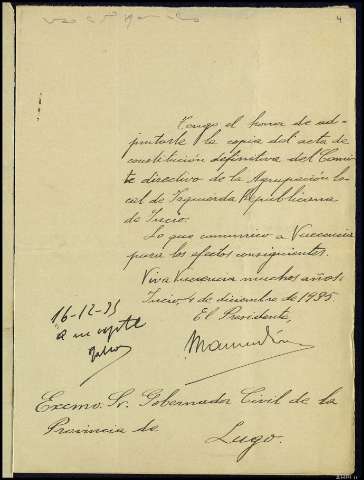 4
Tengo el honor de ad-
juntarle la copia del acta de
constitución definitiva del Comi-
te directivo de la Agrupación lo-
cal de Izquierda Republicana
de Incio.
Lo que comunico a Vuecencia
para los efectos consiguientes.
Viva Vuecencia muchos años.
Incio, 4 de diciembre de 1935
El Presidente,
16-12-35
a su expte
Excmo. Sr. Gobernador Civil de la
Provincia de
Lugo.